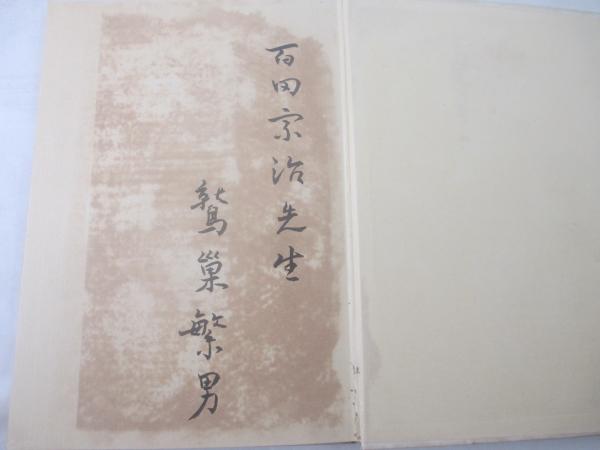 百田宗治先生
鷲巣繁男